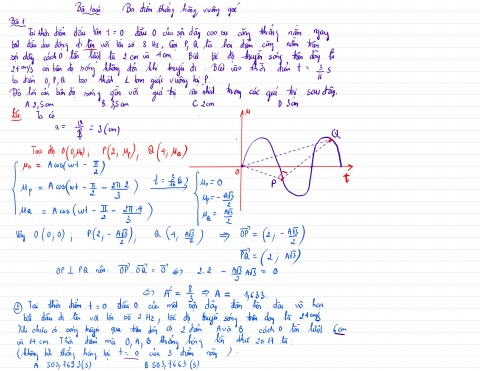 Bài toán: Ba điểm thẳng hàng vuông góc
Bài 1:
Tại thời điểm đầu tiên t = 0 đầu O của sợi dây cao su căng thẳng nằm ngang
bắt đầu dao động đi lên với tần số 8 Hz, Gọi P, Q là hai điểm cùng nằm trên
sợi dây cách O lần lượt là 2 cm và 4 cm. Biết tốc độ truyền sóng trên dây là
24 cm/s coi biên độ sóng không đổi khi truyền đi. Biết vào thời điểm t = 3/16 s
ba điểm O, P, Q tạo thành Δ vuông tại P.
Độ lớn của biên độ sóng gần với giá trị nào nhất trong các giá trị sau đây.
A 2,5cm B. 3,5cm C 2cm D 3cm
Giải: Ta có
= 3 (cm)
Toạ độ O(0,u₀), P(2, u_P), Q(4, u_Q)
u₀ = A cos(ωt - π/2)
u_P = A cos(ωt - π/2 - 2π.2/3) t = 3/16 (s)
u_Q = A cos(ωt - π/2 - 2π.4/3)
u₀ = 0
u_P = -A√3/2
u_Q = A√3/2
u
Q
O
P
t
Vậy O(0,0); P(2,-A√3/2), Q(4, A√3/2) ⇒ OP = (2; -A√3/2)
PQ = (2; A√3)
OP ⊥ PQ nên. OP.OQ = O ⇔ 2.2 - A√3/2 A√3 = 0
⇔ A² = 8/3 ⇒ A = 1,633.
② Tại thời điểm t = 0 đầu O của một sợi dây đàn hồi dài vô hạn
bắt đầu đi lên với tần số 2 Hz, tốc độ truyền sóng trên dây là 24 cm/s
Khi chưa có sóng truyền qua trên dây có 2 điểm A và B cách O lần lượt 6cm
và 14 cm. Thời điểm mà O, A, B thẳng hàng lần thứ 2017 là:
(không kể thẳng hàng tại t = 0 của 3 điểm này)
A 503,7693(s) B 503,7663(s)